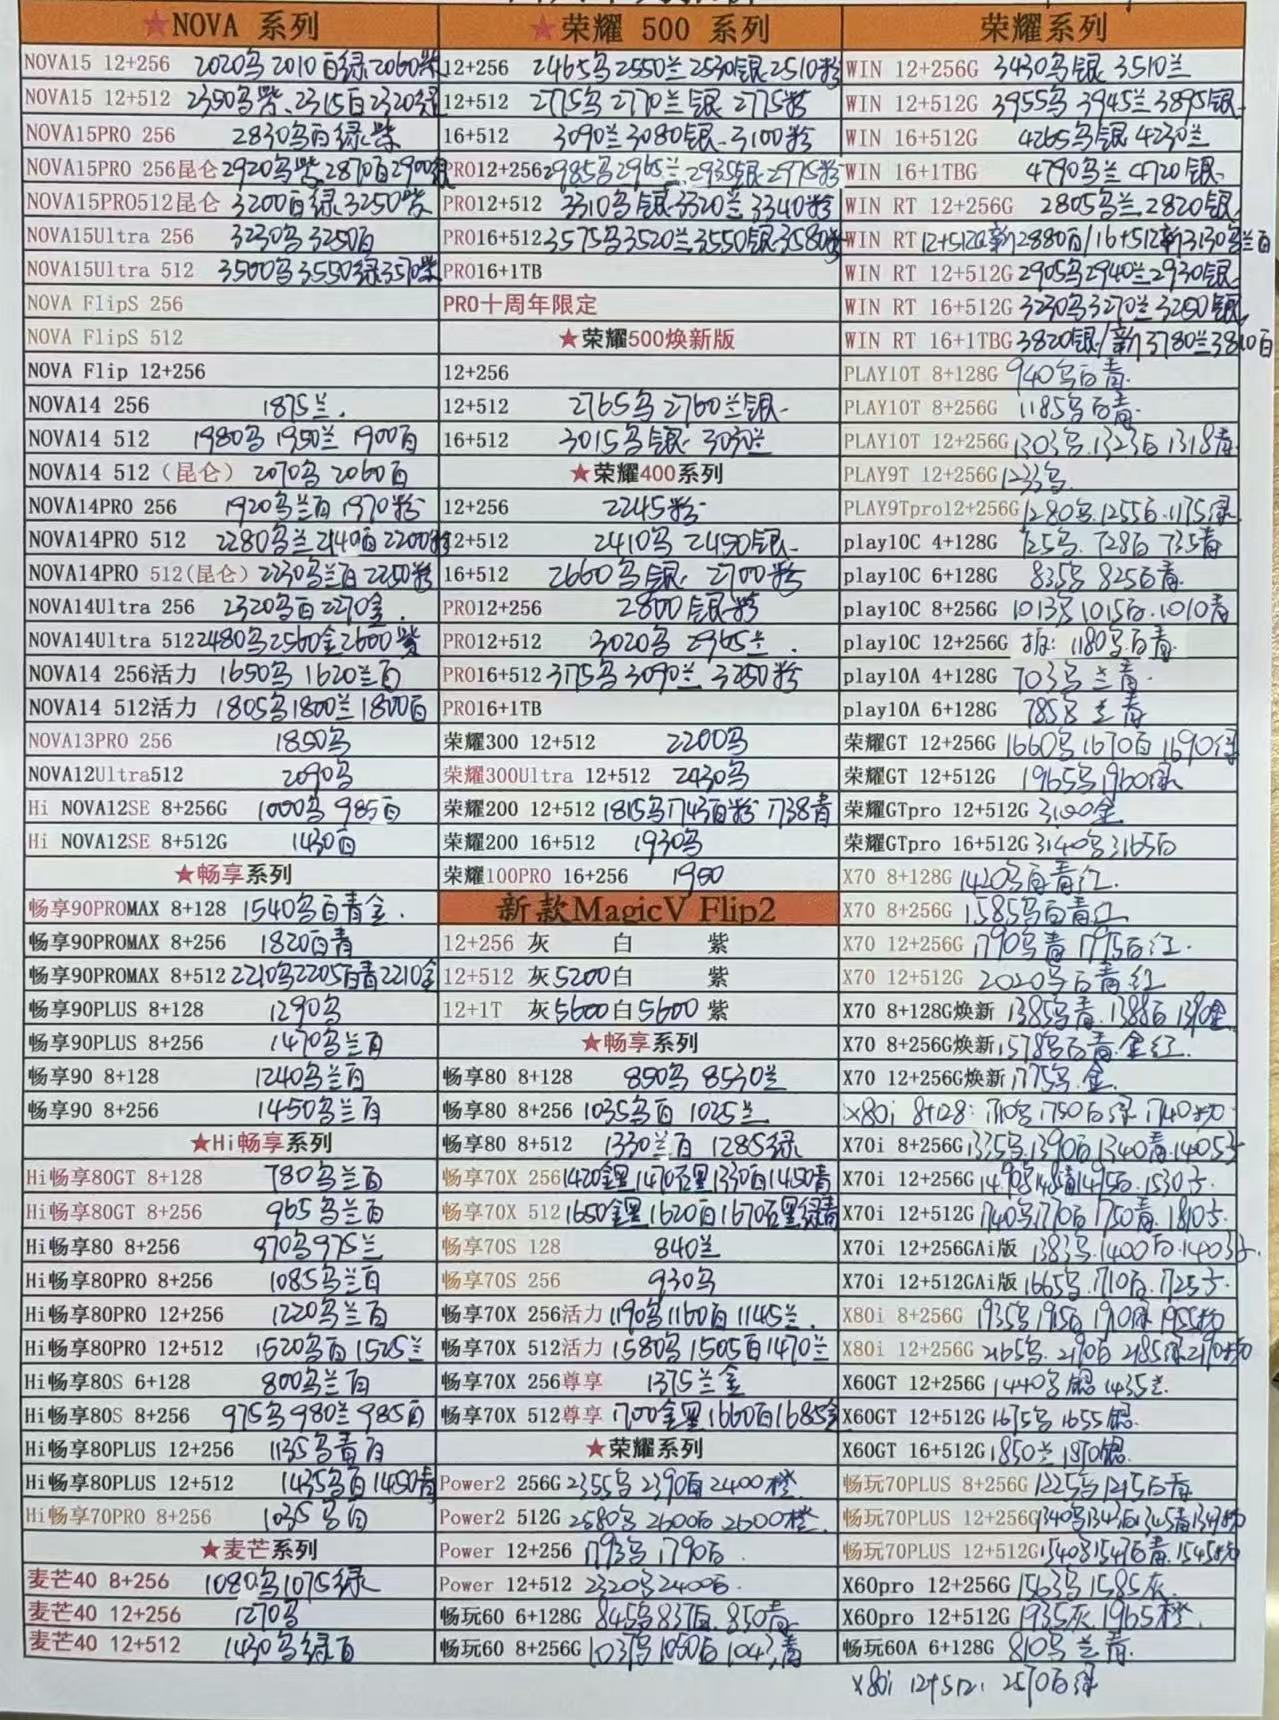 ★NOVA 系列
NOVA15 12+256 2020乌 2010白绿 2060紫
NOVA15 12+512 2350乌紫、2315白 2320绿
NOVA15PRO 256 2830乌白绿紫
NOVA15PRO 256昆仑 2920乌紫 2870白 2900绿
NOVA15PRO512昆仑 3200白绿 3250紫
NOVA15Ultra 256 3230乌 3250白
NOVA15Ultra 512 3500乌 3550绿 3570紫
NOVA FlipS 256
NOVA FlipS 512
NOVA Flip 12+256
NOVA14 256 1875兰.
NOVA14 512 1980乌 1950兰 1900白
NOVA14 512（昆仑） 2070乌 2060白
NOVA14PRO 256 1920乌兰白 1970粉
NOVA14PRO 512 2280乌兰 2140白 2200粉
NOVA14PRO 512(昆仑) 2230乌兰白 2250粉
NOVA14Ultra 256 2320乌白 2270金.
NOVA14Ultra 512 2480乌 2560金 2600紫
NOVA14 256活力 1650乌 1620兰白
NOVA14 512活力 1805乌 1800兰 1800白
NOVA13PRO 256 1850乌
NOVA12Ultra512 2090乌
Hi NOVA12SE 8+256G 1000乌 985白
Hi NOVA12SE 8+512G 1430白
★畅享系列
畅享90PROMAX 8+128 1540乌白青金.
畅享90PROMAX 8+256 1820白青
畅享90PROMAX 8+512 2210乌 2205白青 2210金
畅享90PLUS 8+128 1290乌
畅享90PLUS 8+256 1470乌兰白
畅享90 8+128 1240乌兰白
畅享90 8+256 1450乌兰白
★Hi畅享系列
Hi畅享80GT 8+128 780乌兰白
Hi畅享80GT 8+256 965乌兰白
Hi畅享80 8+256 970乌 975兰
Hi畅享80PRO 8+256 1085乌兰白
Hi畅享80PRO 12+256 1220乌兰白
Hi畅享80PRO 12+512 1520乌白 1525兰
Hi畅享80S 6+128 800乌兰白
Hi畅享80S 8+256 975乌 980兰 985白
Hi畅享80PLUS 12+256 1135乌青白
Hi畅享80PLUS 12+512 1435乌白 1450青
Hi畅享70PRO 8+256 1035乌白
★麦芒系列
麦芒40 8+256 1080乌 1075绿
麦芒40 12+256 1270乌
麦芒40 12+512 1430乌绿白
★荣耀 500 系列
12+256 2465乌 2550兰 2530银 2510粉
12+512 2775乌 2770兰银 2775粉
16+512 3090兰 3080银 3100粉
PRO12+256 2985乌 2965兰 2935银 2975粉
PRO12+512 3310乌银 3320兰 3340粉
PRO16+512 3575乌 3520兰 3550银 3580粉
PRO16+1TB
PRO十周年限定
★荣耀500焕新版
12+256
12+512 2765乌 2760兰银
16+512 3015乌银 3030兰
★荣耀400系列
12+256 2245粉
12+512 2410乌 2490银
16+512 2660乌银 2700粉
PRO12+256 2800银粉
PRO12+512 3020乌 2965兰.
PRO16+512 3175乌 3090兰 3250粉
PRO16+1TB
荣耀300 12+512 2200乌
荣耀300Ultra 12+512 2430乌
荣耀200 12+512 1815乌 1743白粉 1738青
荣耀200 16+512 1930乌
荣耀100PRO 16+256 1980
新款MagicV Flip2
12+256 灰 白 紫
12+512 灰5200白 紫
12+1T 灰5600白5600 紫
★畅享系列
畅享80 8+128 850乌 8530兰
畅享80 8+256 1035乌白 1025兰
畅享80 8+512 1330兰白 1285绿
畅享70X 256 1420金黑 1470石黑 1330白 1450青
畅享70X 512 1650金黑 1620白 1670石黑绿青
畅享70S 128 840兰
畅享70S 256 930乌
畅享70X 256活力 1190乌 1160白 1145兰.
畅享70X 512活力 1580乌 1505白 1470兰
畅享70X 256尊享 1375兰金
畅享70X 512尊享 1700金黑 1660白 1685金
★荣耀系列
Power2 256G 2355乌 2390白 2400橙.
Power2 512G 2580乌 2600白 2600橙.
Power 12+256 1793乌 1790白.
Power 12+512 2320乌 2400白.
畅玩60 6+128G 845乌 837白. 850青.
畅玩60 8+256G 1037乌 1050白 1043青
荣耀系列
WIN 12+256G 3430乌银 3510兰
WIN 12+512G 3955乌 3945兰 3895银
WIN 16+512G 4265乌银 4230兰
WIN 16+1TBG 4790乌兰 4720银
WIN RT 12+256G 2805乌兰 2820银
WIN RT 12+512G新2880白/16+512新3130乌兰白
WIN RT 12+512G 2905乌 2940兰 2930银
WIN RT 16+512G 3230乌 3270兰 3250银
WIN RT 16+1TBG 3820银/新3780兰 3810白
PLAY10T 8+128G 940乌白青.
PLAY10T 8+256G 1185乌白青.
PLAY10T 12+256G 1303乌. 1323白 1318青
PLAY9T 12+256G 1233乌.
PLAY9Tpro12+256G 1280乌. 1255白. 1175绿
play10C 4+128G 725乌. 728白 735青
play10C 6+128G 835乌 825白青.
play10C 8+256G 1013乌 1015白. 1010青
play10C 12+256G 报: 1180乌白青.
play10A 4+128G 703乌兰青.
play10A 6+128G 785乌兰青
荣耀GT 12+256G 1660乌 1670白 1690绿
荣耀GT 12+512G 1965乌 1960绿
荣耀GTpro 12+512G 3100金
荣耀GTpro 16+512G 3140乌 3165白
X70 8+128G 1420乌白青红.
X70 8+256G 1585乌白青红
X70 12+256G 1790乌青 1795白红.
X70 12+512G 2020乌白青红
X70 8+128G焕新 1385乌青. 1388白 1390金
X70 8+256G焕新 1578乌白青金红.
X70 12+256G焕新 1775乌.金.
X80i 8+128: 1710乌 1750白绿 1740粉.
X70i 8+256G 1335乌 1390白 1340青 1405
X70i 12+256G 1495白. 1530
X70i 12+512G 1740乌 1770白 1750青. 1810
X70i 12+256GAi版 1383乌. 1400白. 1403
X70i 12+512GAi版 1665乌. 1710白. 1725
X80i 8+256G 1935乌 1915白 1910绿 1955粉
X80i 12+256G 2165乌. 2190白 2185绿 2190粉
X60GT 12+256G 1440乌银 1435兰.
X60GT 12+512G 1675乌 1655银.
X60GT 16+512G 1850兰 1870银.
畅玩70PLUS 8+256G 1225乌 1215白青
畅玩70PLUS 12+256G 1340乌 1343白 1345青 1349粉
畅玩70PLUS 12+512G 1540乌 1547白青. 1545粉
X60pro 12+256G 1563乌 1585灰.
X60pro 12+512G 1935灰 1965橙.
畅玩60A 6+128G 810乌兰青.
X80i 12+512. 2570白绿